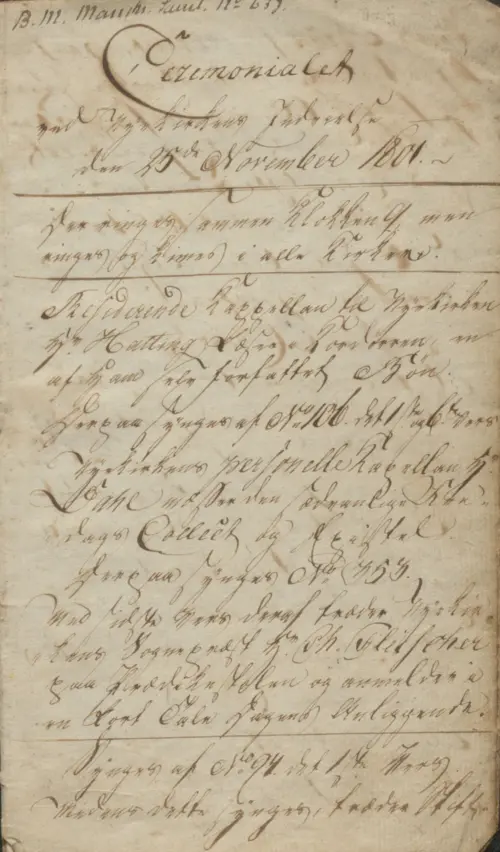 B. M. Manskr. Suppl. No 659.
Ceremonialet
ved Nyekirkens Indvielse
den 25de November 1801.
Der ringes sammen Klokken 9, men
ringes og kimes i alle Kirker.
Residerende Kappellan til Nyekirken
Hr Hatting Læser i Koordøren, en
af ham selv forfattet Bøn.
Derpaa synges af No 106. det 1 og 6te Vers
Nyekirkens personelle Kapellan Hr
Dahl messer den sædvanlige
dags Collect og Epistel.
Derpaa synges No 353.
Ved sidste Vers deraf træder Nyekir
kens Sognepræst Hr Ch. Fleischer
paa Prædikestolen og anmelder i
en kort Tale Dagens Anliggende.
Synges af No 94 det 1ste Vers
Medens dette synges, træder Stift